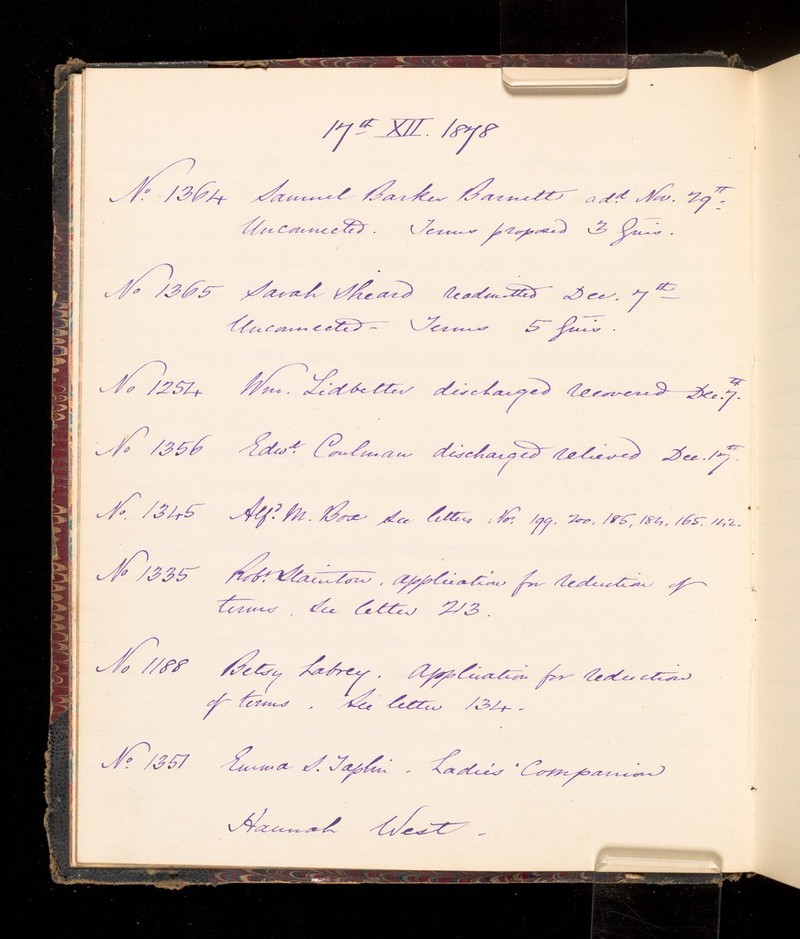 17th XII. 1878
No. 1364 Samuel Barker Barnett add. Nov. 29th.
Unconnected. Terms proposed 3 Guis.
No 1365 Sarah Sheard readmitted Dec. 7th
Unconnected - Terms 5 Guis.
No 1254 Wm. Lidbetter discharged recovered Dec. 7th.
No 1356 Edwd. Coulman discharged relieved Dec. 17th.
No. 1345 Alfd. M. Box See letters No. 199. 200. 185, 184. 165.
No 1335 Robt Stainton. application for reduction of
terms. See letter 213.
No 1188 Betsy Labrey. Application for reduction
of terms. See letter 134.
No. 1351 Emma S. Taplin. Ladies' Companion
Hannah West -